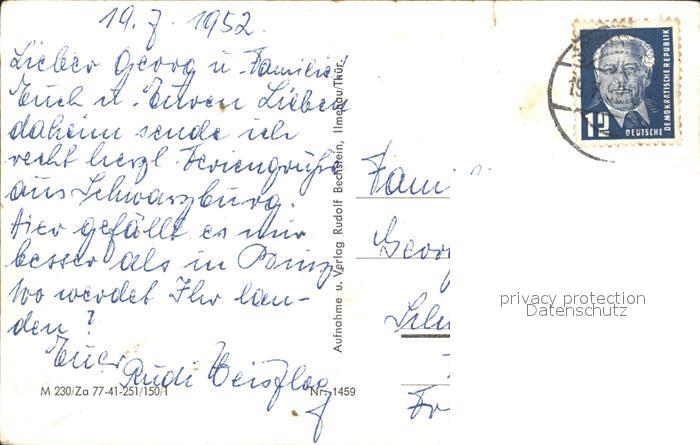 19. 7. 1952.
Lieber Georg u. Familie!
Euch u. Euren Lieben
daheim sende ich
recht herzl. Feriengrüße
aus Schwarzburg.
Hier gefällt es mir
besser als in Binz.
Wo werdet Ihr lan-
den?
Euer
Rudi
M 230/Za 77-41-251/150/1
Nr. 1459
Aufnahme u. Verlag Rudolf Bechstein, Ilmenau/Thür.
DEUTSCHE
DEMOKRATISCHE REPUBLIK
19
Fami
Georg
privacy protection
Datenschutz